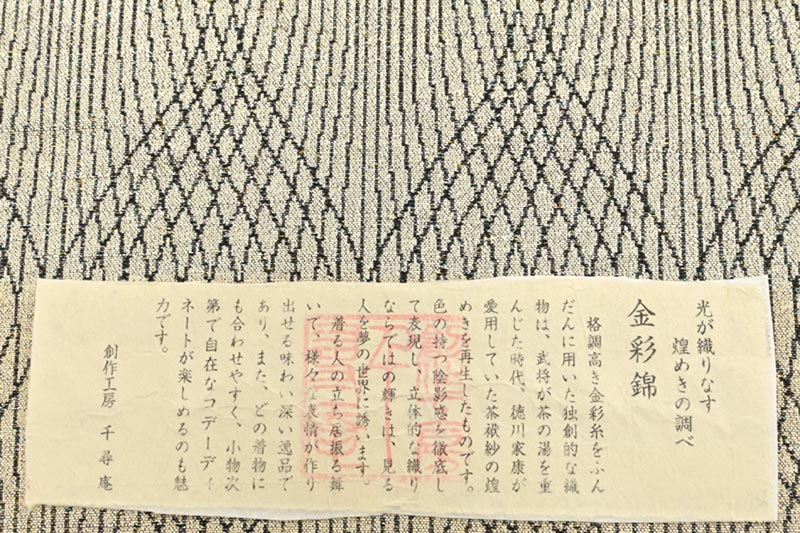 光が織りなす
煌めきの調べ
金彩錦
格調高き金彩糸をふん
だんに用いた独創的な織
物は、武将が茶の湯を重
んじた時代、徳川家康が
愛用していた茶袱紗の煌
めきを再生したものです。
色の持つ陰影感を徹底し
て表現し、立体的な織り
ならではの輝きは、見る
人を夢の世界に誘います。
着る人の立ち居振る舞
いで、様々な表情が作り
出せる味わい深い逸品で
あり、また、どの着物に
も合わせやすく、小物次
第で自在なコーディ
ネートが楽しめるのも魅
力です。
創作工房 千尋庵